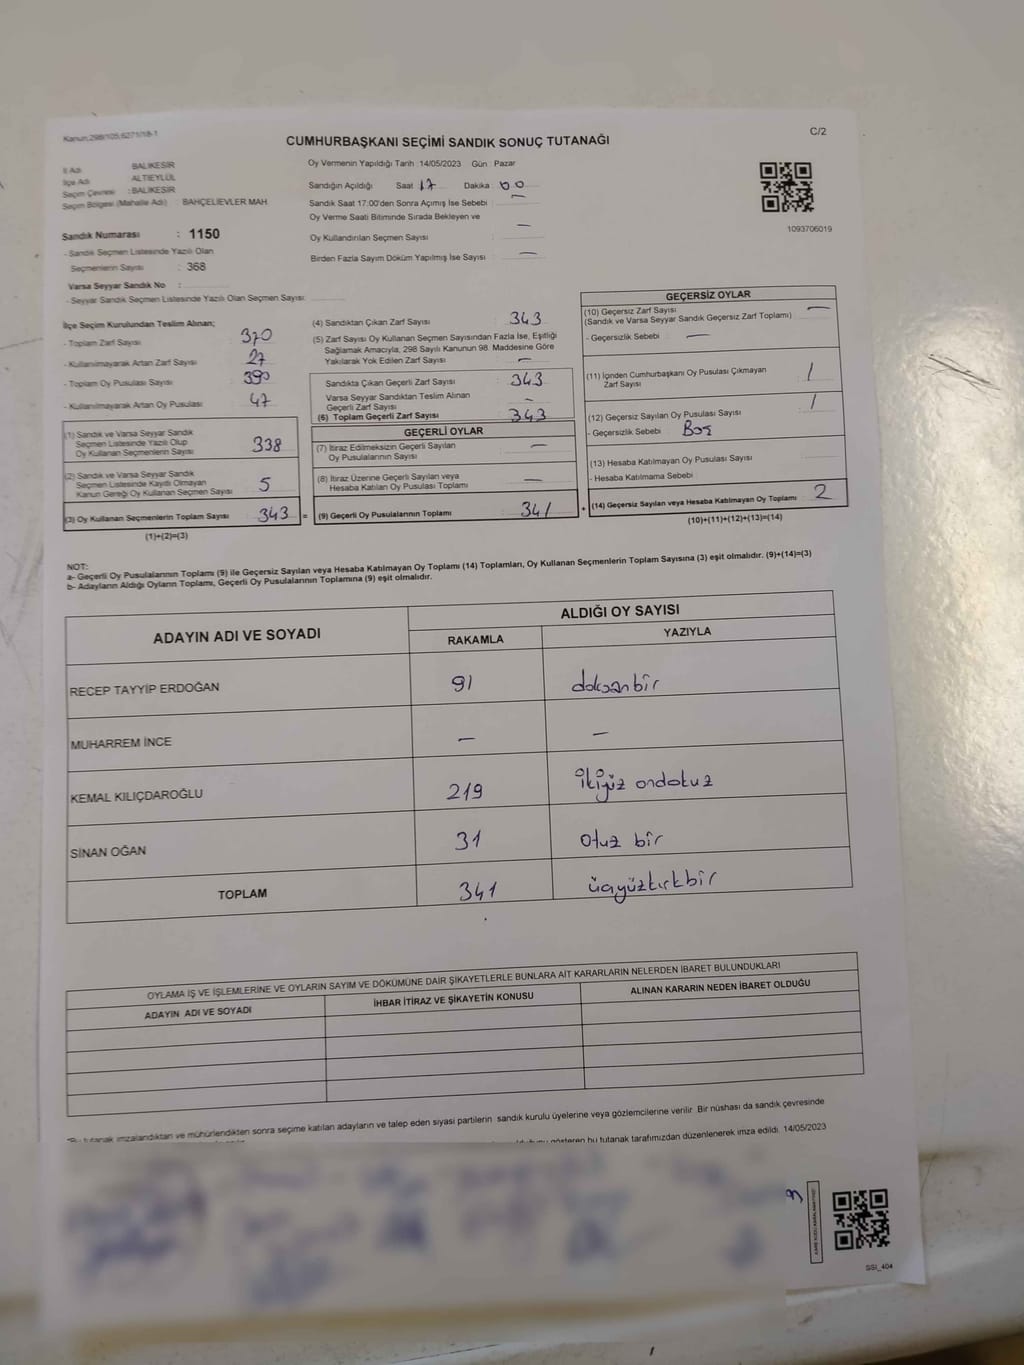 Kanun:298/105;6271/18-1
C/2
CUMHURBAŞKANI SEÇİMİ SANDIK SONUÇ TUTANAĞI
İl Adı BALIKESİR
İlçe Adı ALTIEYLÜL
Seçim Çevresi : BALIKESİR
Seçim Bölgesi (Mahalle Adı) : BAHÇELİEVLER MAH
Sandık Numarası : 1150
- Sandık Seçmen Listesinde Yazılı Olan
Seçmenlerin Sayısı : 368
Varsa Seyyar Sandık No :
- Seyyar Sandık Seçmen Listesinde Yazılı Olan Seçmen Sayısı:
Oy Vermenin Yapıldığı Tarih : 14/05/2023 Gün : Pazar
Sandığın Açıldığı Saat : 17 Dakika : 00
Sandık Saat 17:00'den Sonra Açımış İse Sebebi : —
Oy Verme Saati Bitiminde Sırada Bekleyen ve
Oy Kullandırılan Seçmen Sayısı : —
Birden Fazla Sayım Döküm Yapılmış İse Sayısı : —
1093706019
İlçe Seçim Kurulundan Teslim Alınan;
- Toplam Zarf Sayısı : 370
- Kullanılmayarak Artan Zarf Sayısı : 27
- Toplam Oy Pusulası Sayısı : 390
- Kullanılmayarak Artan Oy Pusulası : 47
(1) Sandık ve Varsa Seyyar Sandık
Seçmen Listesinde Yazılı Olup
Oy Kullanan Seçmenlerin Sayısı 338
(2) Sandık ve Varsa Seyyar Sandık
Seçmen Listesinde Kayıtlı Olmayan
Kanun Gereği Oy Kullanan Seçmen Sayısı 5
(3) Oy Kullanan Seçmenlerin Toplam Sayısı 343 =
(1)+(2)=(3)
(4) Sandıktan Çıkan Zarf Sayısı : 343
(5) Zarf Sayısı Oy Kullanan Seçmen Sayısından Fazla İse, Eşitliği
Sağlamak Amacıyla, 298 Sayılı Kanunun 98. Maddesine Göre
Yakılarak Yok Edilen Zarf Sayısı : —
Sandıkta Çıkan Geçerli Zarf Sayısı : 343
Varsa Seyyar Sandıktan Teslim Alınan
Geçerli Zarf Sayısı : —
(6) Toplam Geçerli Zarf Sayısı : 343
GEÇERLİ OYLAR
(7) İtiraz Edilmeksizin Geçerli Sayılan
Oy Pusulalarının Sayısı : —
(8) İtiraz Üzerine Geçerli Sayılan veya
Hesaba Katılan Oy Pusulası Toplamı : —
(9) Geçerli Oy Pusulalarının Toplamı : 341 +
GEÇERSİZ OYLAR
(10) Geçersiz Zarf Sayısı : —
(Sandık ve Varsa Seyyar Sandık Geçersiz Zarf Toplamı)
- Geçersizlik Sebebi : —
(11) İçinden Cumhurbaşkanı Oy Pusulası Çıkmayan
Zarf Sayısı : 1
(12) Geçersiz Sayılan Oy Pusulası Sayısı : 1
- Geçersizlik Sebebi : Boş
(13) Hesaba Katılmayan Oy Pusulası Sayısı :
- Hesaba Katılmama Sebebi :
(14) Geçersiz Sayılan veya Hesaba Katılmayan Oy Toplamı : 2
(10)+(11)+(12)+(13)=(14)
NOT:
a- Geçerli Oy Pusulalarının Toplamı (9) ile Geçersiz Sayılan veya Hesaba Katılmayan Oy Toplamı (14) Toplamları, Oy Kullanan Seçmenlerin Toplam Sayısına (3) eşit olmalıdır. (9)+(14)=(3)
b- Adayların Aldığı Oyların Toplamı, Geçerli Oy Pusulalarının Toplamına (9) eşit olmalıdır.
ADAYIN ADI VE SOYADI
ALDIĞI OY SAYISI
RAKAMLA YAZIYLA
RECEP TAYYİP ERDOĞAN 91 doksanbir
MUHARREM İNCE — —
KEMAL KILIÇDAROĞLU 219 ikiyüz ondokuz
SİNAN OĞAN 31 otuz bir
TOPLAM 341 üçyüzkırkbir
OYLAMA İŞ VE İŞLEMLERİNE VE OYLARIN SAYIM VE DÖKÜMÜNE DAİR ŞİKAYETLERLE BUNLARA AİT KARARLARIN NELERDEN İBARET BULUNDUKLARI
ADAYIN ADI VE SOYADI İHBAR İTİRAZ VE ŞİKAYETİN KONUSU ALINAN KARARIN NEDEN İBARET OLDUĞU
"Bu tutanak imzalandıktan ve mühürlendikten sonra seçime katılan adayların ve talep eden siyasi partilerin sandık kurulu üyelerine veya gözlemcilerine verilir. Bir nüshası da sandık çevresinde
gösteren bu tutanak tarafımızdan düzenlenerek imza edildi. 14/05/2023
SSI_404